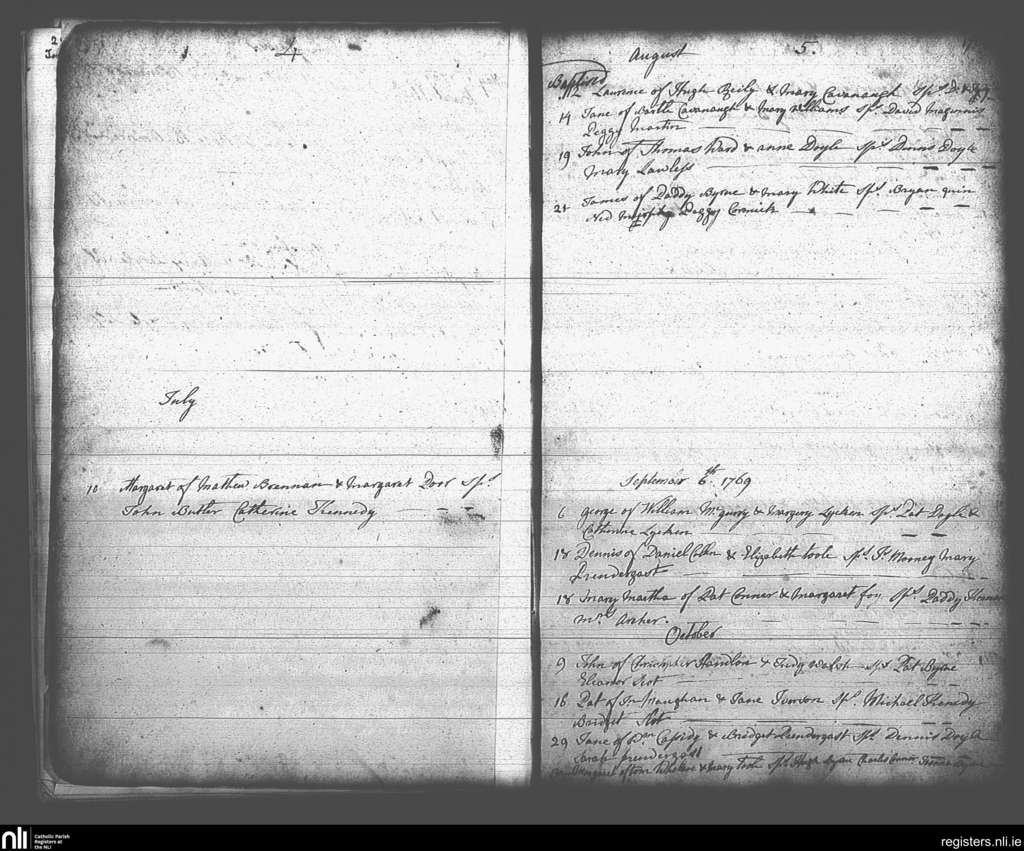 4
July
10 Margaret of Mathew Brennan & Margaret Door Sps
John Butler Catherine Kennedy
5.
August
Baptised
12 Laurence of Hugh Reily & Mary Cavanaugh Sps
14 Jane of Bartle Cavanaugh & Mary Williams Sps David Maginnis
Peggy Martin
19 John of Thomas Ward & anne Doyle Sps Dennis Doyle
Mary Lawless
21 James of Paddy Byrne & Mary White Sps Bryan quin
Ned Peggy Cormick
Septembr 6th 1769
6 george of William & Margery Lycken Sps Pat Doyle &
Catherine Lycken
18 Dennis of Daniel & Elizabeth toole Sps Js Mooney Mary
Prendergast
18 Mary Martha of Pat Conner & Margaret foy Sps Paddy
Mrs Archer.
October
9 John of Christopher Hanlon & Judy Walsh Sps Pat Byrne
Eleanor Rot
16 Pat of Jn Maughan & Jane Sps Michael Kenedy
Bridget Rot
29 Jane of Cassidy & Bridget Prendergast Sps Dennis Doyle
Sarah prendergast
Margaret of Tom & Mary Toole Sps Hugh Ryan Charles Connor
nli
Catholic Parish
Registers at
the NLI
registers.nli.ie